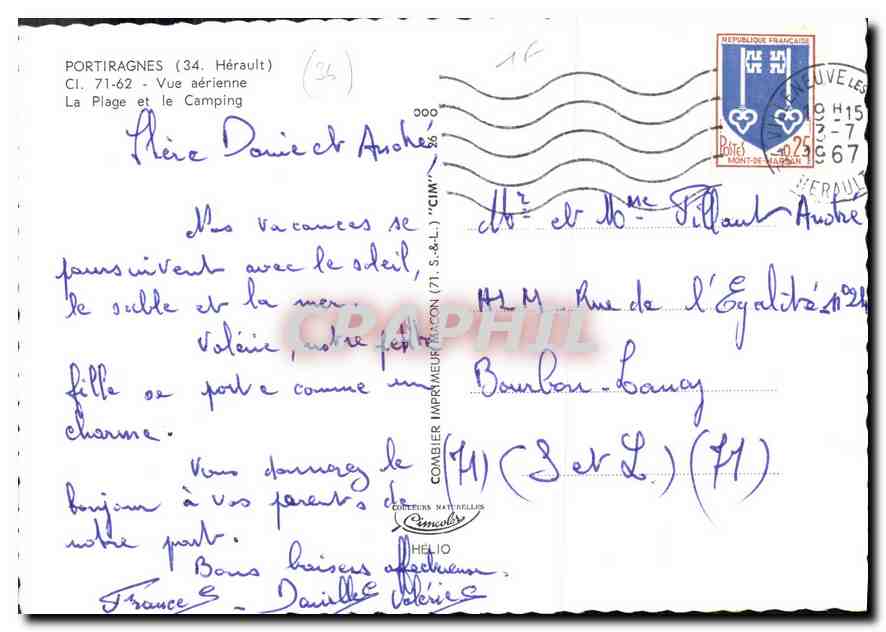 PORTIRAGNES (34. Hérault)
Cl. 71-62 - Vue aérienne
La Plage et le Camping
(34)
1F
REPUBLIQUE FRANÇAISE
POSTES
0,25
MONT-DE-MARSAN
VILLENEUVE LES
19H15
3-7
1967
HERAULT
Chère Danie et André,
Nos vacances se
poursuivent avec le soleil,
le sable et la mer.
Valérie, notre petite
fille se porte comme un
charme.
Vous donnerez le
bonjour à vos parents de
notre part.
Bons baisers affectueux.
France - Danielle Valérie
COMBIER IMPRIMEUR MACON (71. S.-&-L.) "CIM"
COULEURS NATURELLES
Cimcolor
HÉLIO
Mr et Mme Pillaut André
HLM Rue de l'Egalité n°24
Bourbon-Lancy
(71) (S et L.) (71)
CPAPHIL